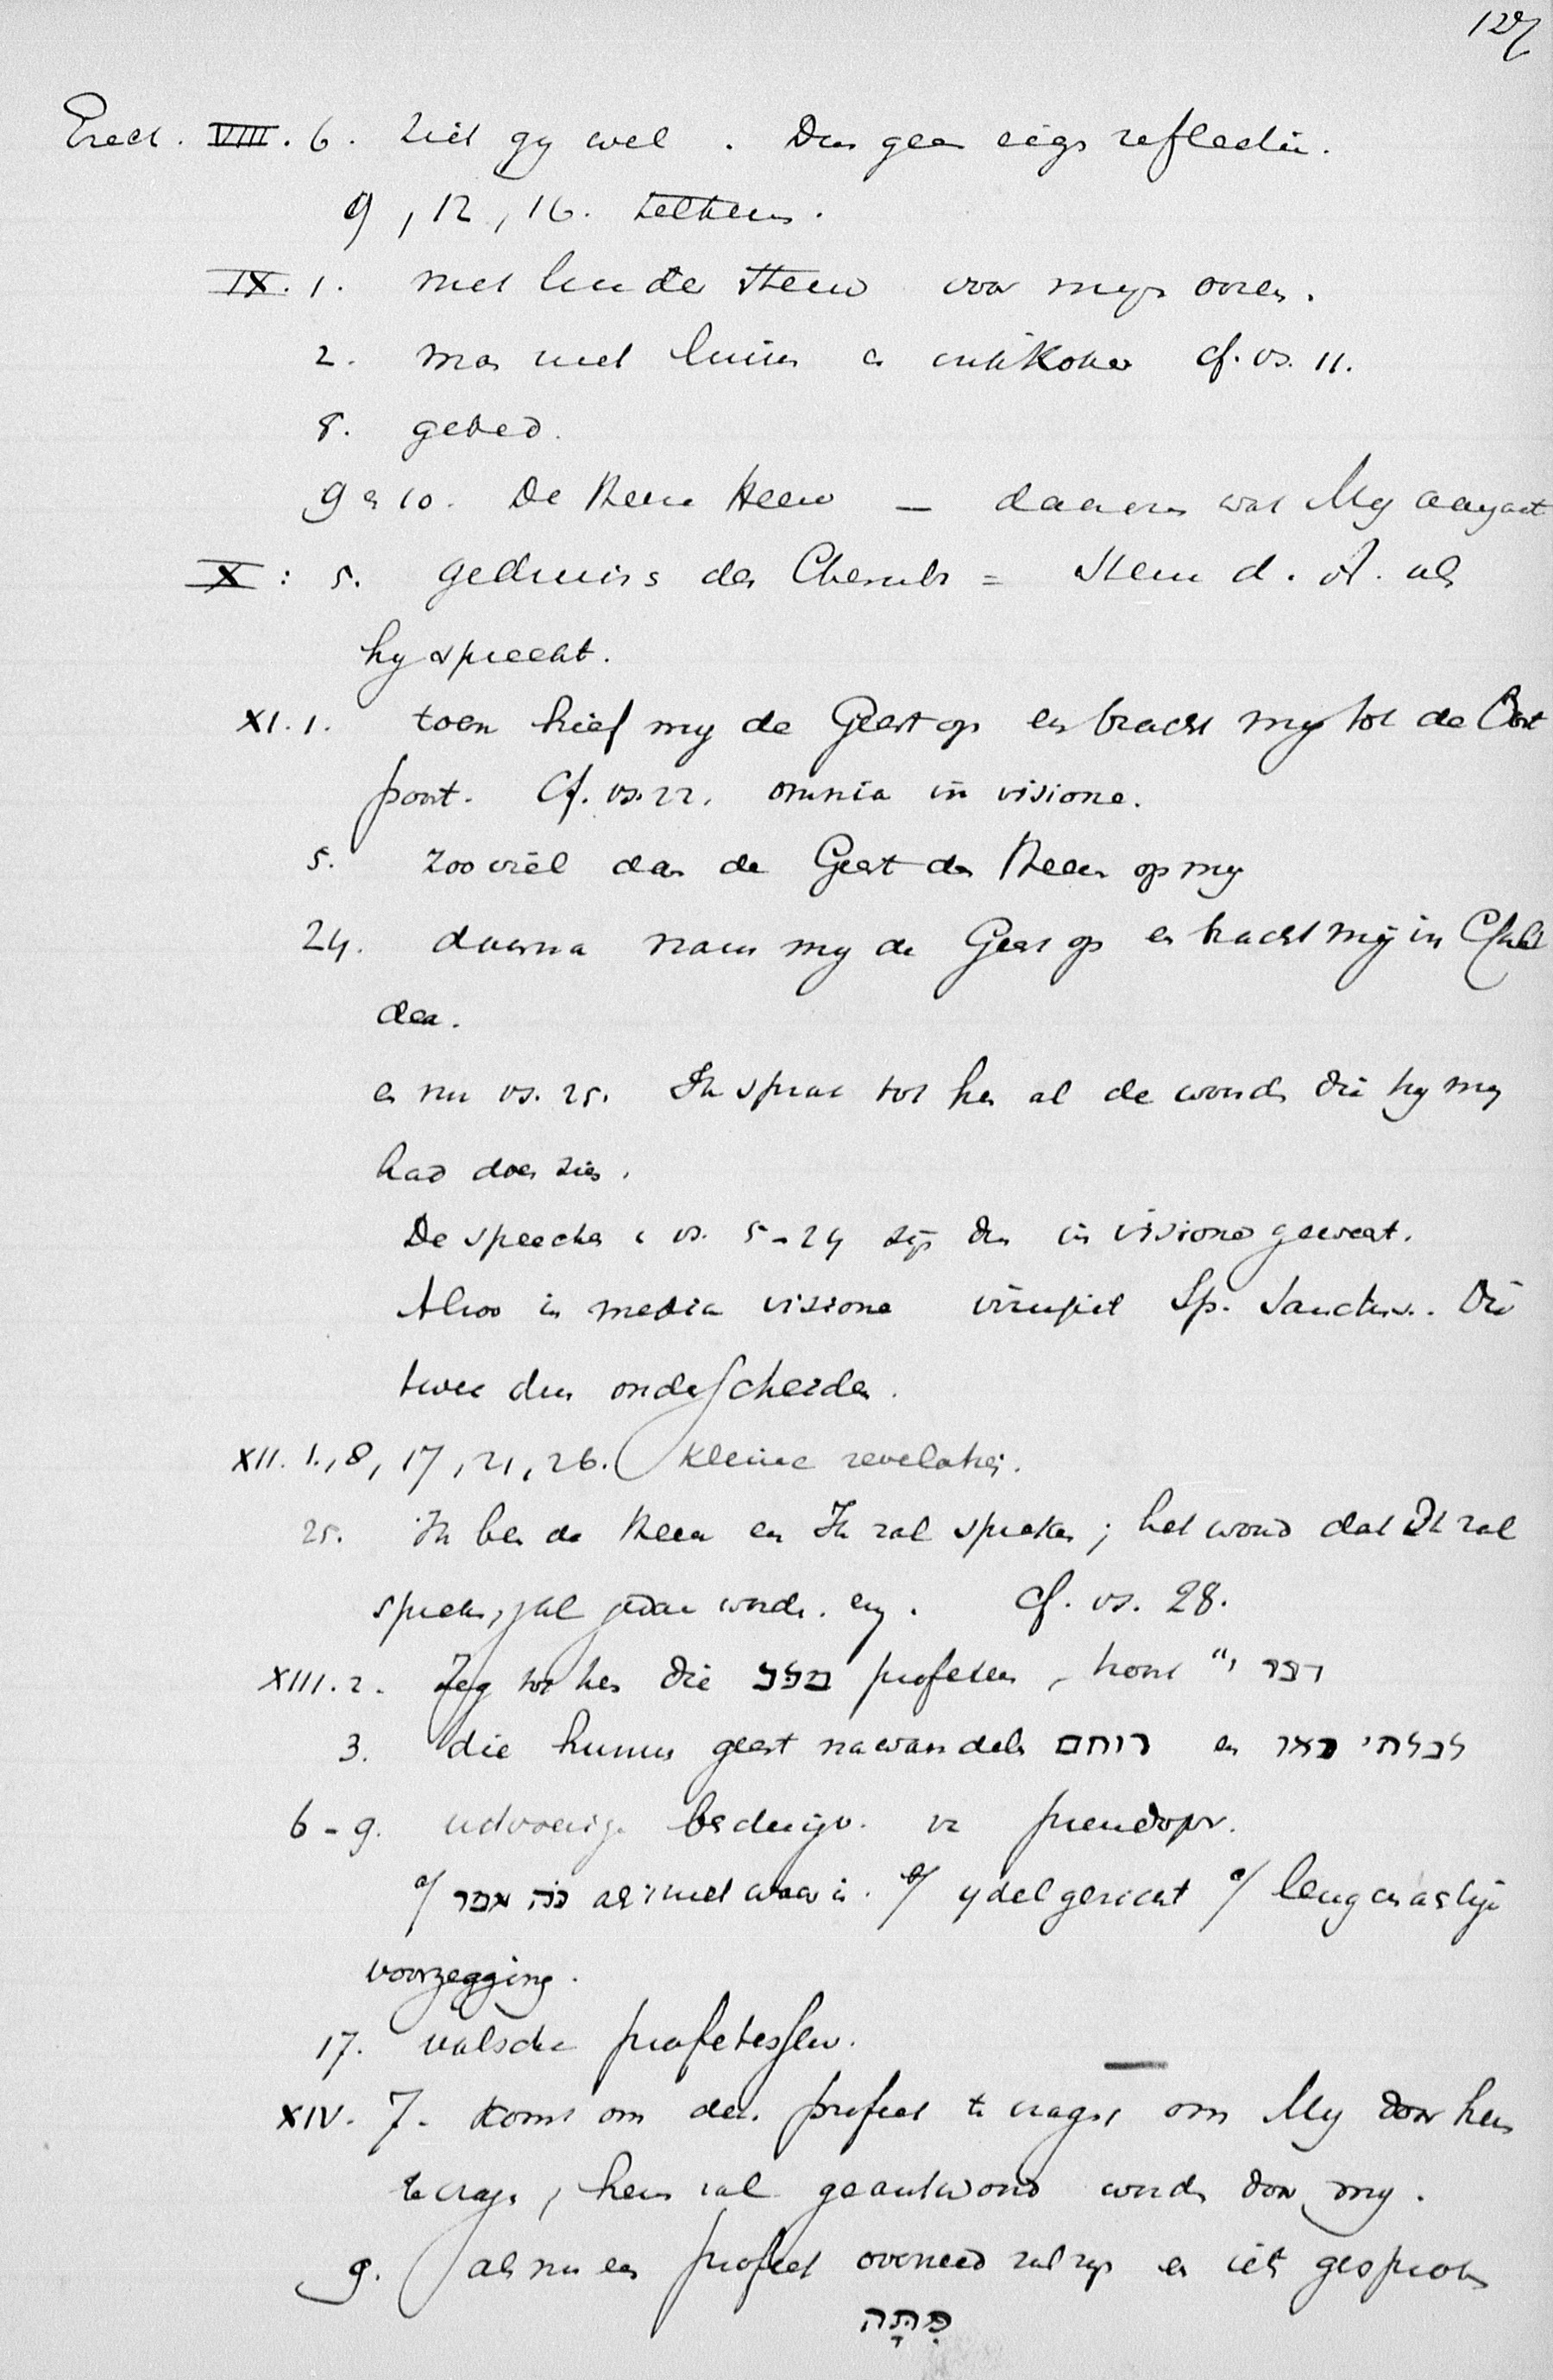 127
Ezech. VIII. 6. Ziet gy wel. Dus geen eigen reflectie.
9, 12, 16. telkens.
IX. 1. met luider stem voor myn ooren.
2. man met linnen en inktkoker cf. vs. 11.
8. gebed.
9 en 10. De Heere Heere — daarom wat My aangaat
X: 5. gedruis der Cherubs = stem d. A. als
hy spreekt.
XI. 1. toen hief my de Geest op en bracht my tot de Oost
poort. Cf. vs. 22. omnia in visione.
5. zoo viel dan de Geest des Heeren op my
24. daarna nam my de Geest op en bracht mij in Chal
dea.
en nu vs. 25. Ik sprak tot hen al de woorden die hy my
had doen zien.
De spreeken in vs. 5-24 zijn dus in visione geweest.
Alzoo in media visione irrupit Sp. Sanctus. Die
twee dus onderscheiden.
XII. 1., 8, 17, 21, 26. kleine revelatiën.
25. Ik ben de Heere en Ik zal spreken; het woord dat Ik zal
spreken, zal gedaan worden. enz. cf. vs. 28.
XIII. 2. Zeg tot hen die מלב profeteren, hoort דבר י״
3. die hunnen geest nawandelen רוחם en לבלתי ראו
6-9. uitvoerige beschrijv. v. pseudopr.
a/ כה אמר als 't niet waar is. b/ ydel gezicht c/ leugenachtige
voorzegging.
17. valsche profetessen.
XIV. 7. Komt om den profeet te vragen om My door hem
te vragen, hem zal geantwoord worden door my.
9. als nu een profeet overreed zal zyn en iets gesproken
פִּתָּה